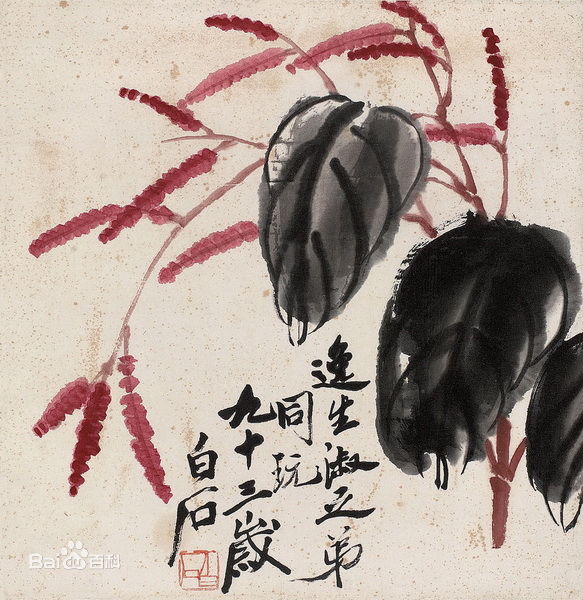 逸生淑之弟
同玩
九十三歲
白石
Bai du 百科